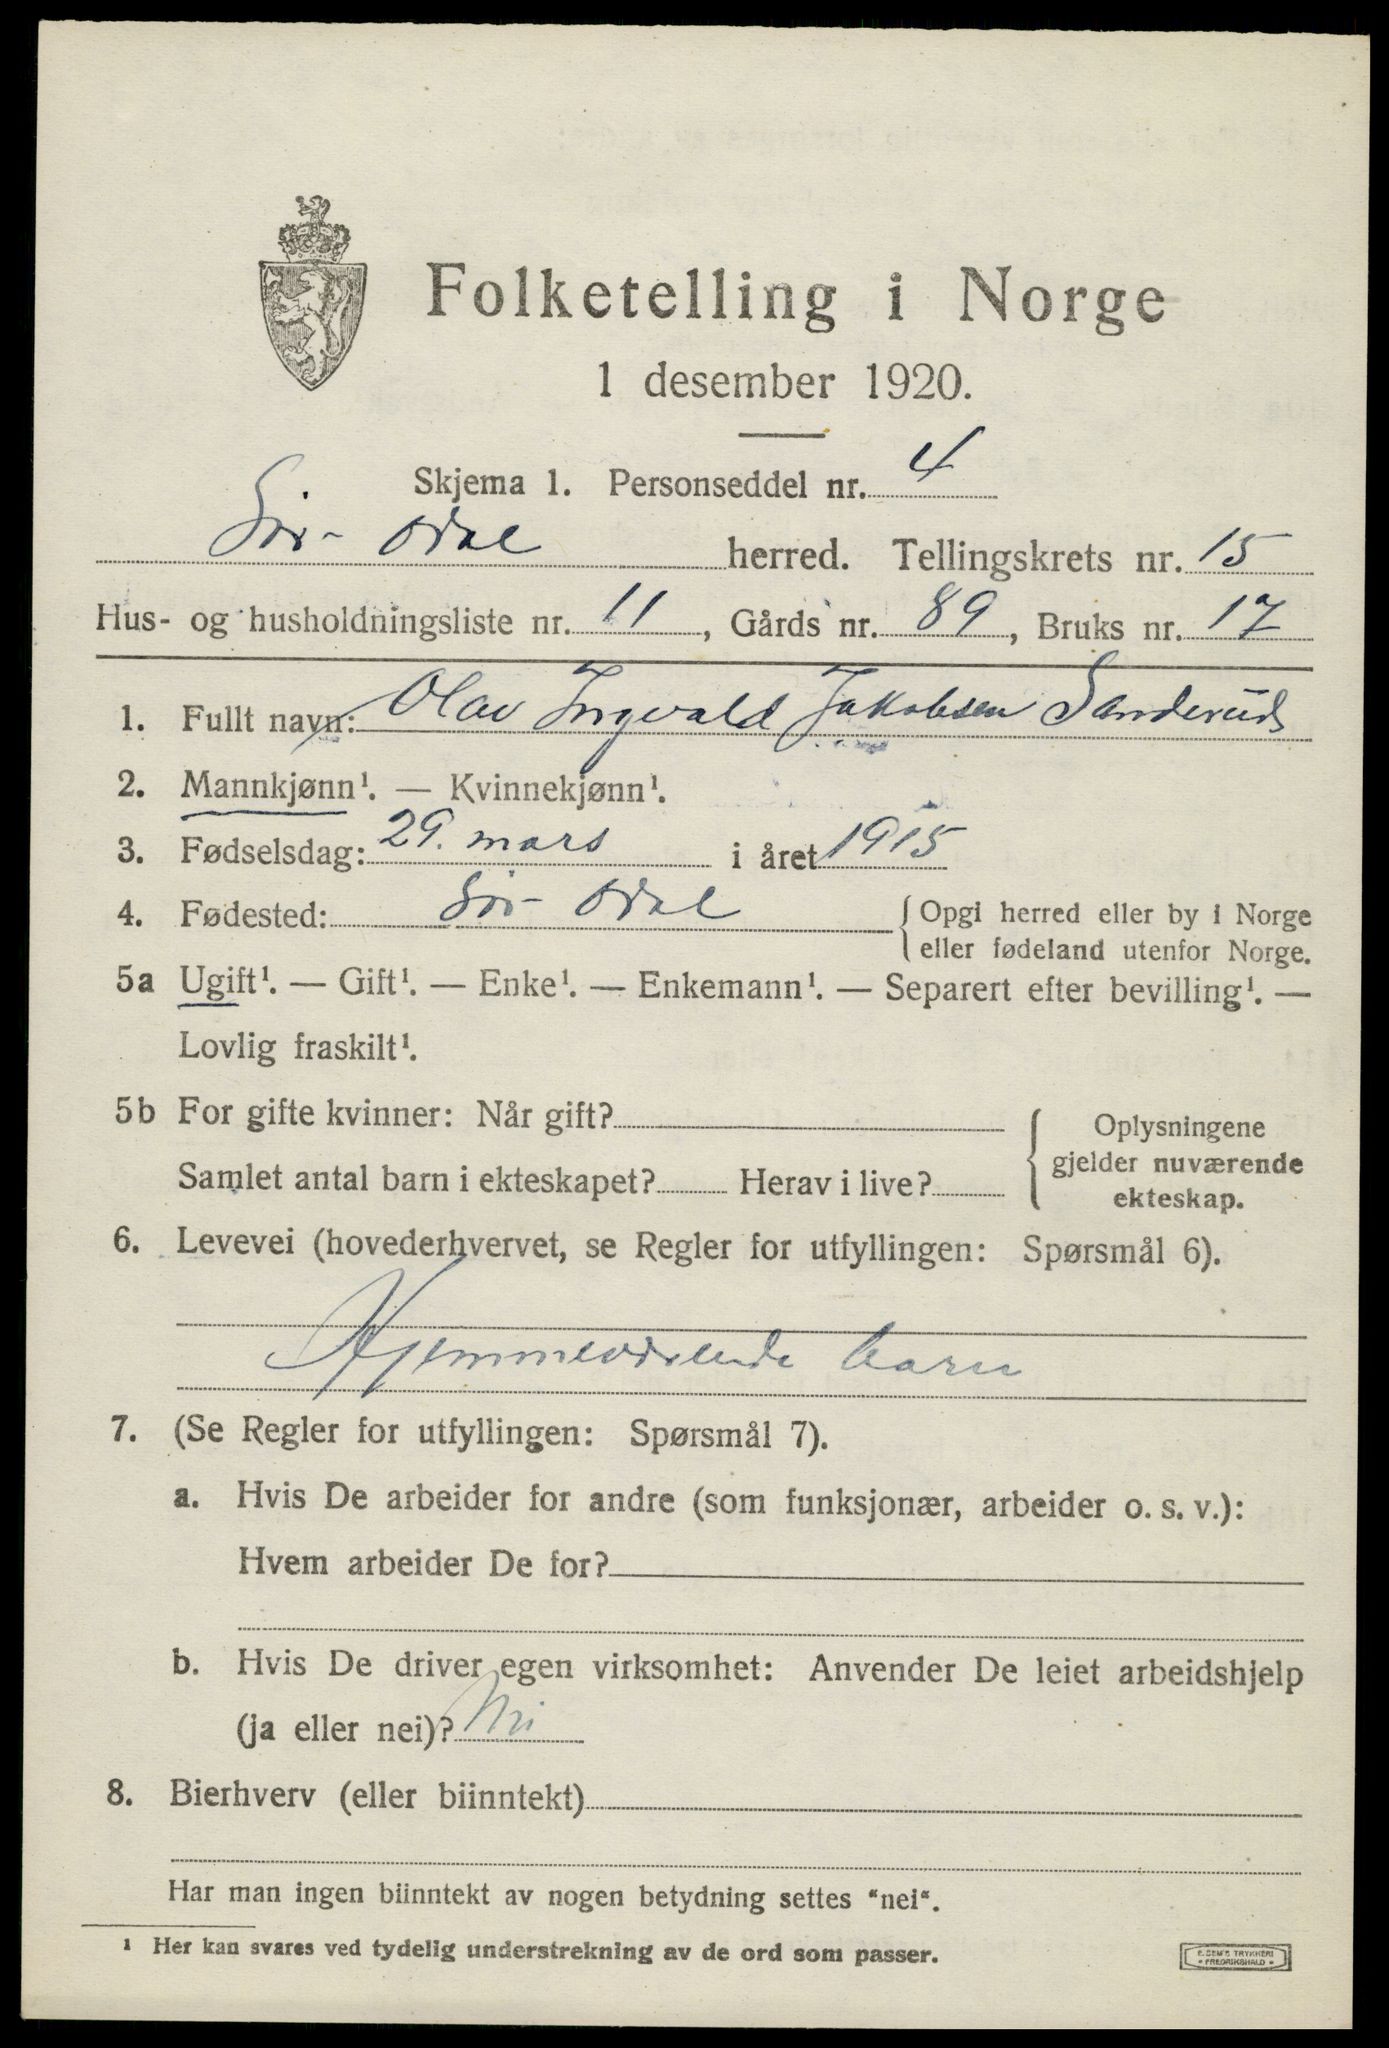 Folketelling i Norge
1 desember 1920.
Skjema 1. Personseddel nr. 4
Sør-Odal herred. Tellingskrets nr. 15
Hus- og husholdningsliste nr. 11, Gårds nr. 89, Bruks nr. 17
1. Fullt navn: Olav Ingvald Jakobsen Sanderud
2. Mannkjønn¹. — Kvinnekjønn¹.
3. Fødselsdag: 29. mars i året 1915
4. Fødested: Sør-Odal {Opgi herred eller by i Norge
eller fødeland utenfor Norge.
5a Ugift¹. — Gift¹. — Enke¹. — Enkemann¹. — Separert efter bevilling¹. —
Lovlig fraskilt¹.
5b For gifte kvinner: Når gift?
Samlet antal barn i ekteskapet? Herav i live?
Oplysningene
gjelder nuværende
ekteskap.
6. Levevei (hovederhvervet, se Regler for utfyllingen: Spørsmål 6).
Hjemmeværende barn
7. (Se Regler for utfyllingen: Spørsmål 7).
a. Hvis De arbeider for andre (som funksjonær, arbeider o. s. v.):
Hvem arbeider De for?
b. Hvis De driver egen virksomhet: Anvender De leiet arbeidshjelp
(ja eller nei)? Nei
8. Bierhverv (eller biinntekt)
Har man ingen biinntekt av nogen betydning settes "nei".
¹ Her kan svares ved tydelig understrekning av de ord som passer.
E. SEM'S TRYKKERI
• FREDRIKSHALD •